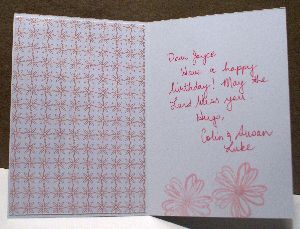 Dear Joyce
Have a happy
birthday! May the
Lord bless you
Hugs,
Colin & Susan
Luke